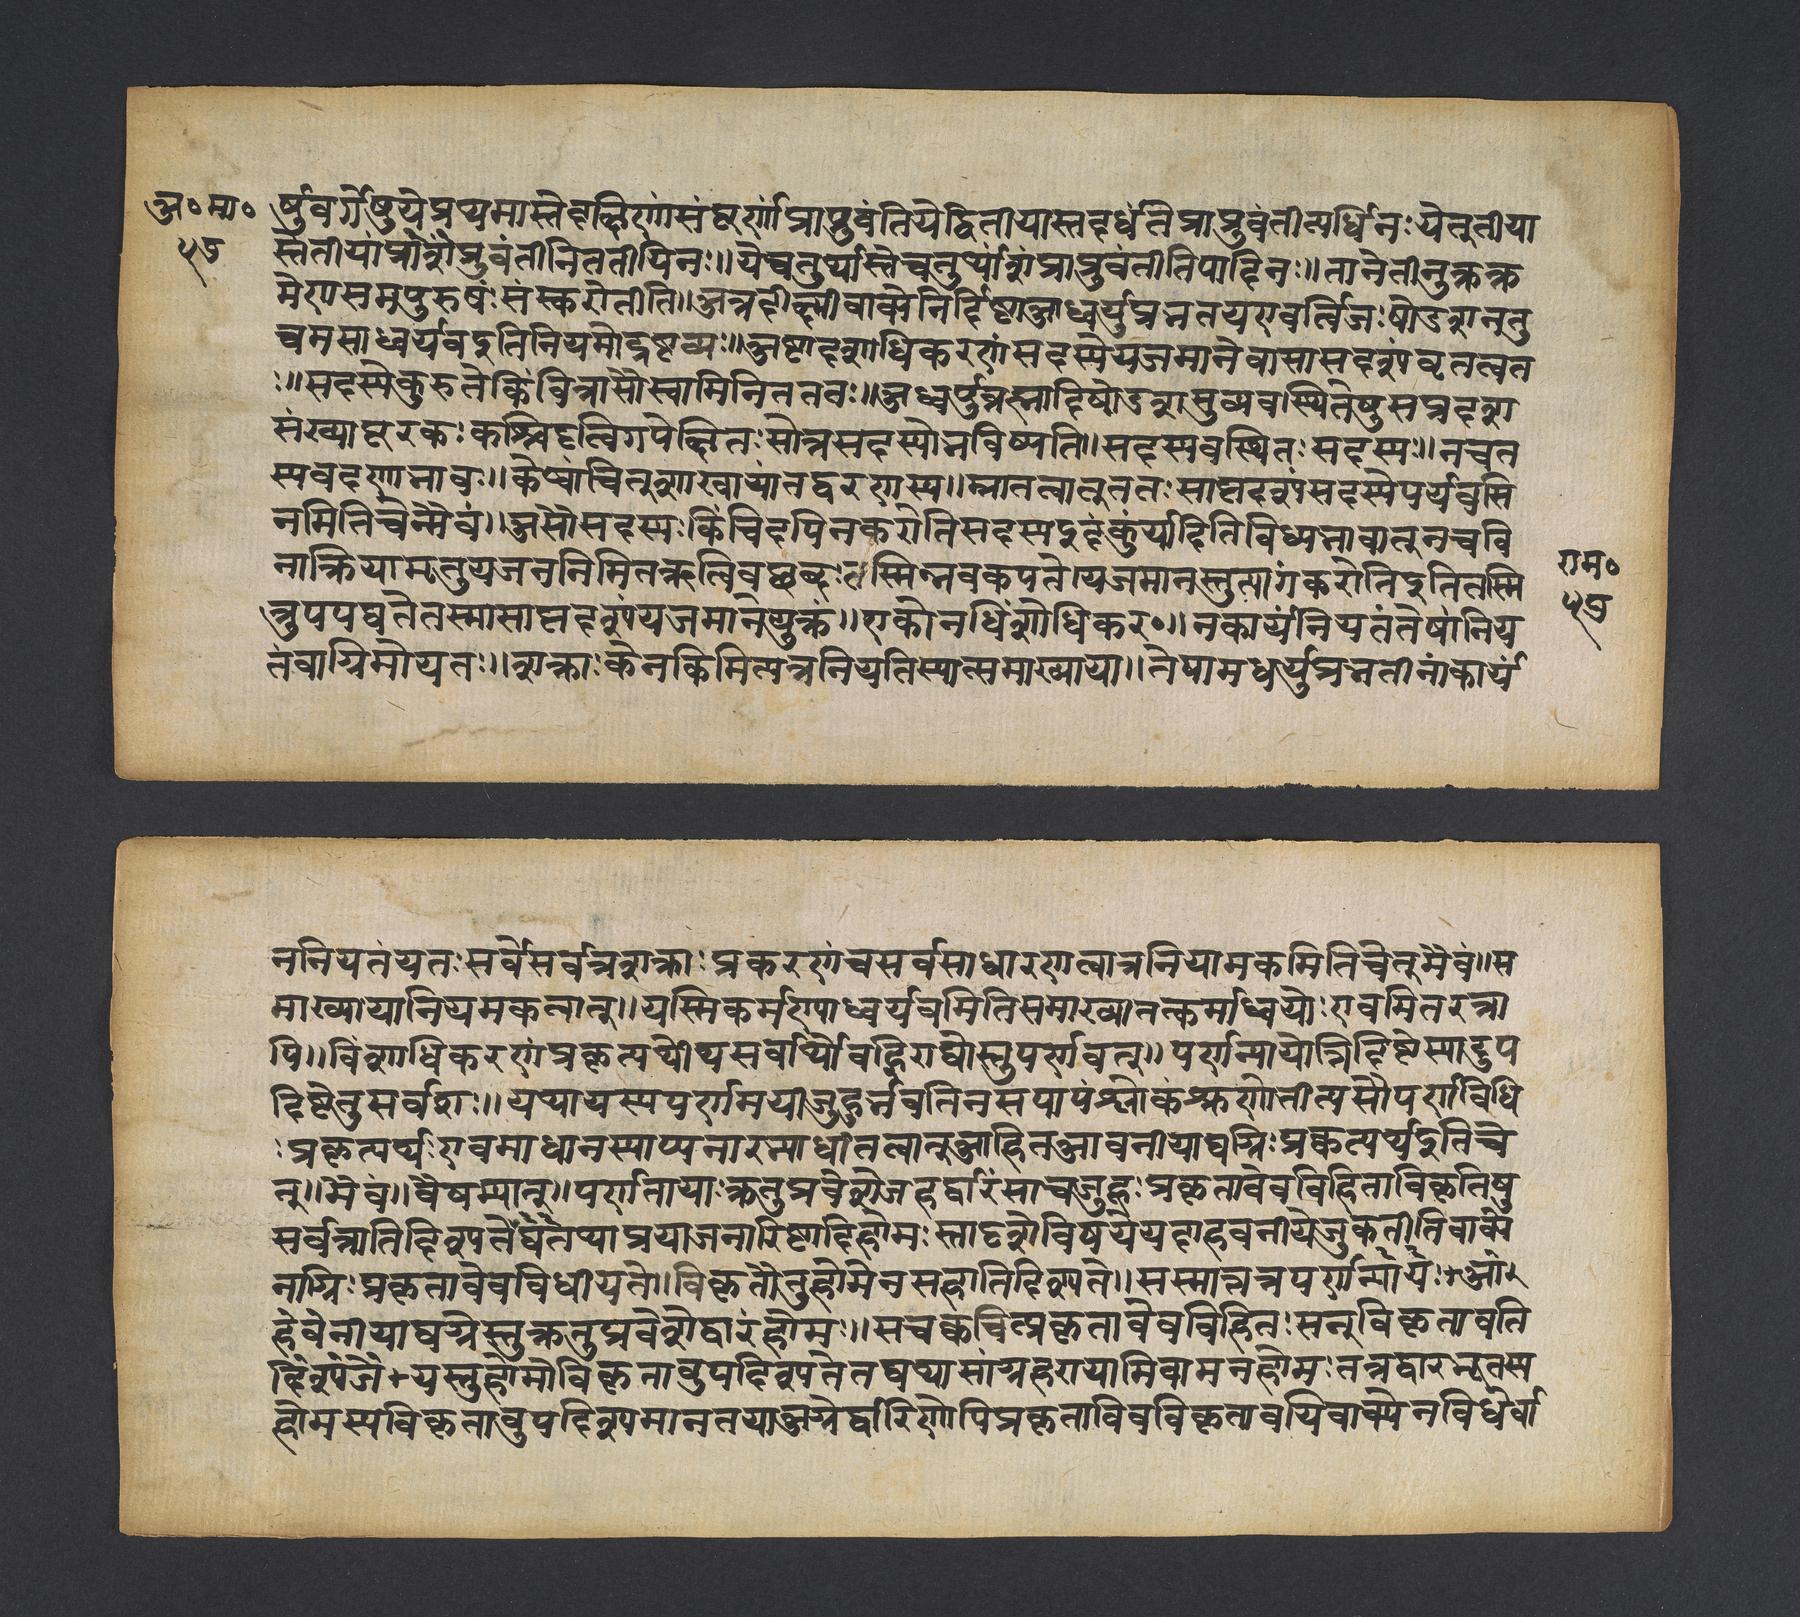 अ०मा० र्षुवर्गेषुयेप्रथमास्तेदक्षिणांसंपूर्णांप्राप्नुवंतियेद्वितीयास्तदर्धंतेप्राप्नुवंतीत्यर्धिनः येतृतीया
५७ स्तेतीयांप्रांशंप्नुवंतीनिततीयिनः॥येचतुर्थास्तेचतुर्थांशंप्राप्नुवंतीतिपादिनः॥तानेतीनुक्तक्र
मेणसमपुरुषंः संस्करोतीति॥अत्रदीक्षीवाक्येनिर्द्दिष्टाअध्वर्युप्रभृतयएवर्त्विजः षोडशनतु
चमसाध्वर्यवइतिनियमोद्रष्टव्यः॥अष्टादशाधिकरणंसदस्येयजमानेवासासदशंवतत्वत
ः॥सदस्येकुरुतेकिंविन्नासौस्वामिनिततवः॥अध्वर्युब्रह्मादिषोडशसुव्यवस्थितेषुसप्तदश
संख्यापूरकः कश्चिदृत्विगपेक्षितः सोत्रसदस्योनविष्यति॥सदस्यवस्थितः सदस्यः॥नचत
स्यवदणानावः॥केष्वांचितुशाखायांतद्वरणस्य॥म्नातत्वातुततः साप्तदशंसदस्येपर्यवसि
नमितिचेन्मैवं॥असौसदस्यः किंचिदपिनकरोतिसदस्यइदंकुर्यादितिविध्यनावात्नचवि
नाक्रियामृतुयजननिमितऋत्विवछब्दः तस्मिन्नवकपते।यजमानस्तुत्यागंकरोतिइतितस्मि
राम०
५७
न्नुपपद्यतेतस्मासाप्तदशंयजमानेयुक्तं॥एकोनविंशोधिकर०॥नकार्यंनियतंतेषांनिय
तंवाग्रिमोयतः॥शक्ताः केनकिमित्यत्रनियतिस्पात्समाख्याया॥तेषामध्वर्युप्रभृतीनांकार्यं
ननियतंयतः सर्वेसर्वत्रशक्ताः प्रकरणंचसर्वसाधारणत्वान्ननियामकमितिचेत्मैवं॥स
माख्यायानियमकत्वात्॥यस्मिकर्मण्याध्वर्यवमितिसमाख्यातत्कर्माध्वर्योः एवमितरत्रा
पि॥विंशाधिकरणंप्रकृत्यर्थोथसर्वार्थोवह्निराद्योस्तुपर्णवत्॥पर्णन्यायोत्रिर्दिष्टेस्यादुप
दिष्टेतुसर्वशः॥यथायस्यपर्णमयीजुहूर्भवतिनसपापंश्लोकंशृणोतीत्यसौपर्णविधि
ः प्रकृत्यर्थः एवमाधानस्याप्यनारभाधीतत्वात्आहितआवनीयाद्यग्निः प्रकृत्यर्थइतिचे
त्॥मैवं॥वैषम्यात्॥पर्णतायाः क्रतुप्रवेशेजहूद्वारिंसाचजुहूः प्रकृतावेवविहिताविकृतिषु
सर्वत्रातिदिश्यतेर्घतेतथाप्रयाजनारिष्टादिहोमः स्तादृशेविषयेयदाहवनीयेजुकतीतिवाक्ये
नाग्निः प्रकृतावेवविधीयते॥विकृतौतुहोमेनसहातिदिश्यते॥सस्मान्नत्रपर्णन्यायः
हवेनीयाद्यग्नेस्तुक्रतुप्रवेशेद्वारंहोमः॥सचक्वचित्प्रकृतावेवविहितः सन्विकृतावति
दिश्यंजे यस्तुहोमोविकृनावुपदिश्यतेतद्यथासांग्रहरायामिवामनहोमः तत्रद्वारभूतस
होमस्यविकृतावुपदिश्यमानतयाअग्नेर्द्वारिणोपिप्रकृताविवविकृतावयिवाक्येनविधेर्वा